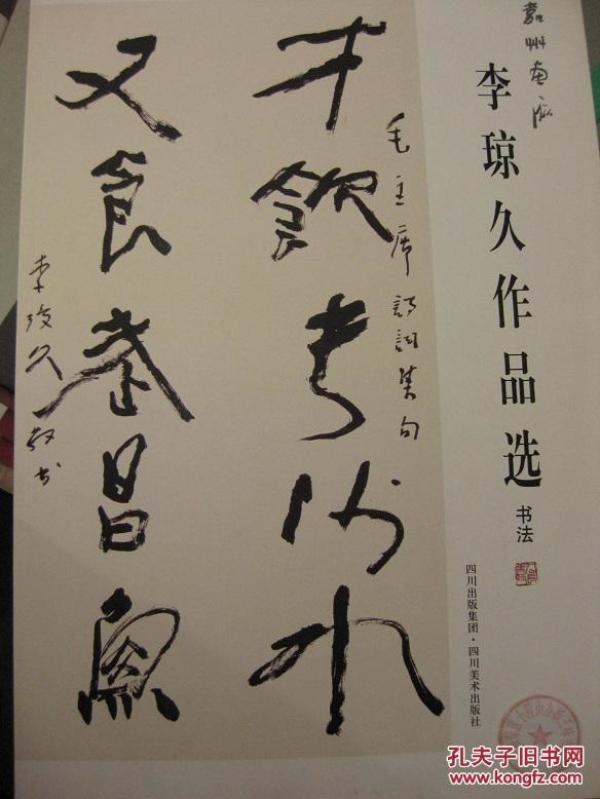 嘉州画派
李琼久作品选
书法
四川出版集团·四川美术出版社
毛主席詩詞集句
才飲長沙水
又食武昌魚
李琼久
孔夫子旧书网
www.kongfz.com